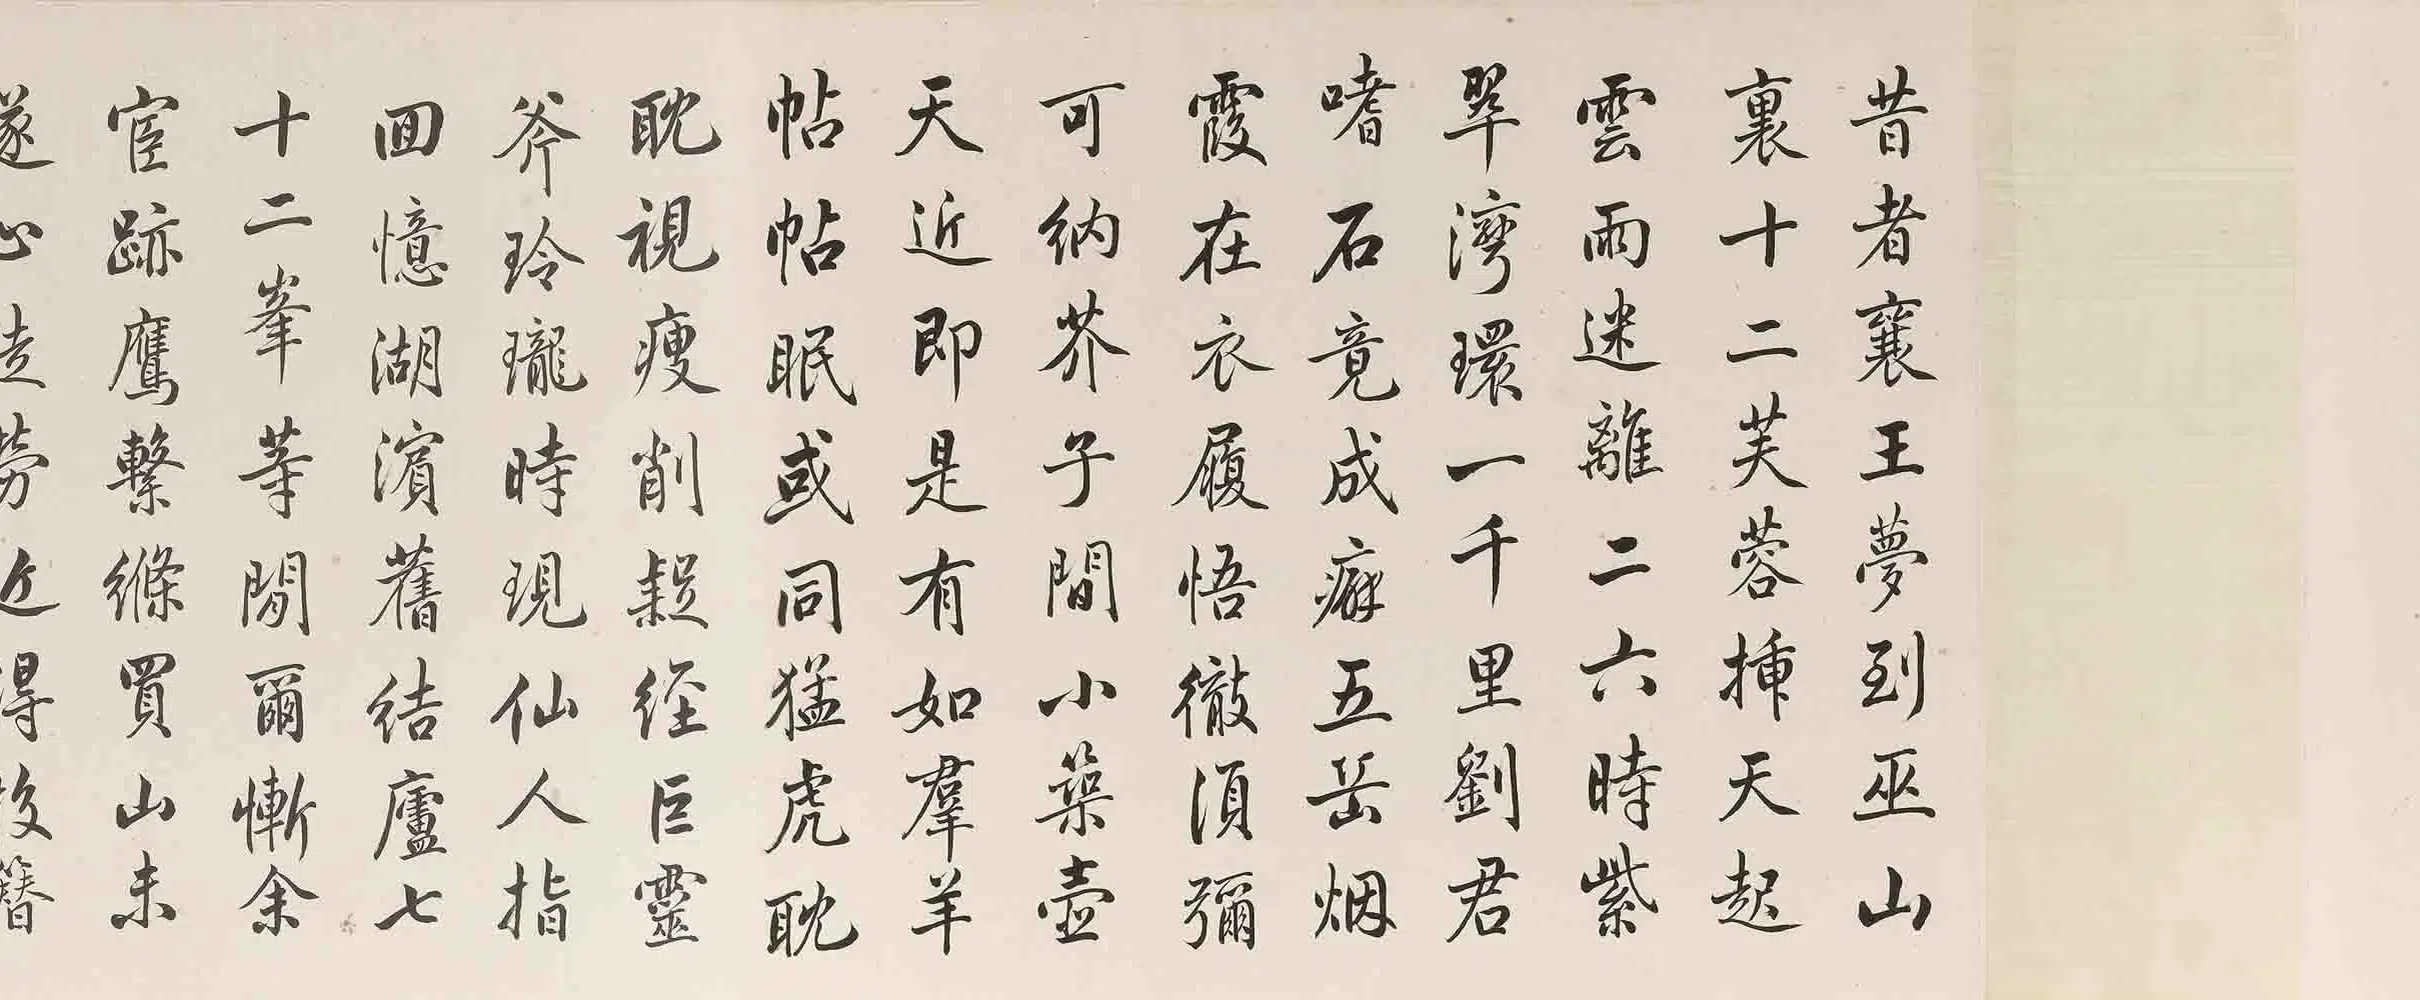 昔者襄王夢到巫山
裏十二芙蓉插天起
雲雨迷離二六時紫
翠灣環一千里劉君
嗜石竟成癖五岳烟
霞在衣履悟徹須彌
可納芥子間小築壺
天近即是有如羣羊
帖帖眠或同猛虎耽
耽視瘦削疑經巨靈
斧玲瓏時現仙人指
回憶湖濱舊結廬七
十二峯等閒爾慚余
宦跡鷹繫絛買山未
遂心徒勞近得